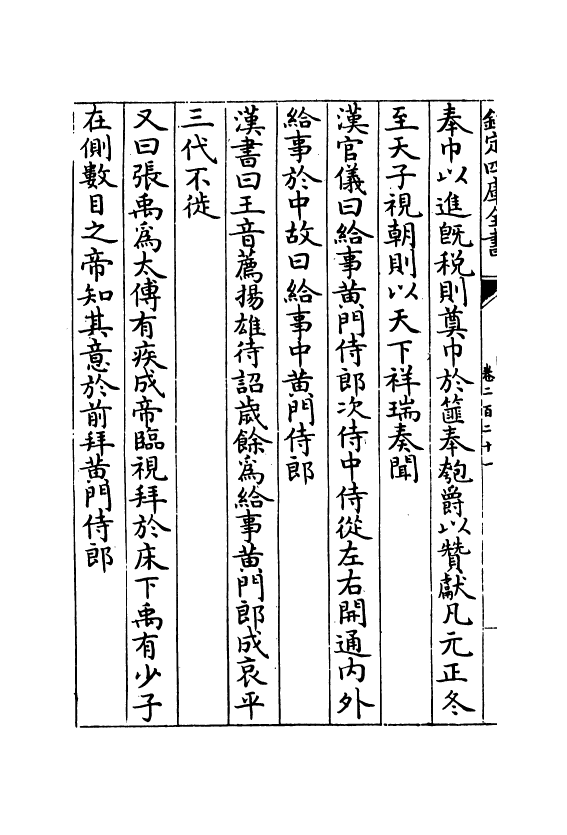 欽定四庫全書
卷二百二十一
奉巾以進旣稅則奠巾於篚奉匏爵以贊獻凡元正冬
至天子視朝則以天下祥瑞奏聞
漢官儀曰給事黄門侍郎次侍中侍從左右開通內外
給事於中故曰給事中黄門侍郎
漢書曰王音薦揚雄待詔歲餘為給事黄門郎成哀平
三代不徙
又曰張禹為太傅有疾成帝臨視拜於床下禹有少子
在側數目之帝知其意於前拜黄門侍郎